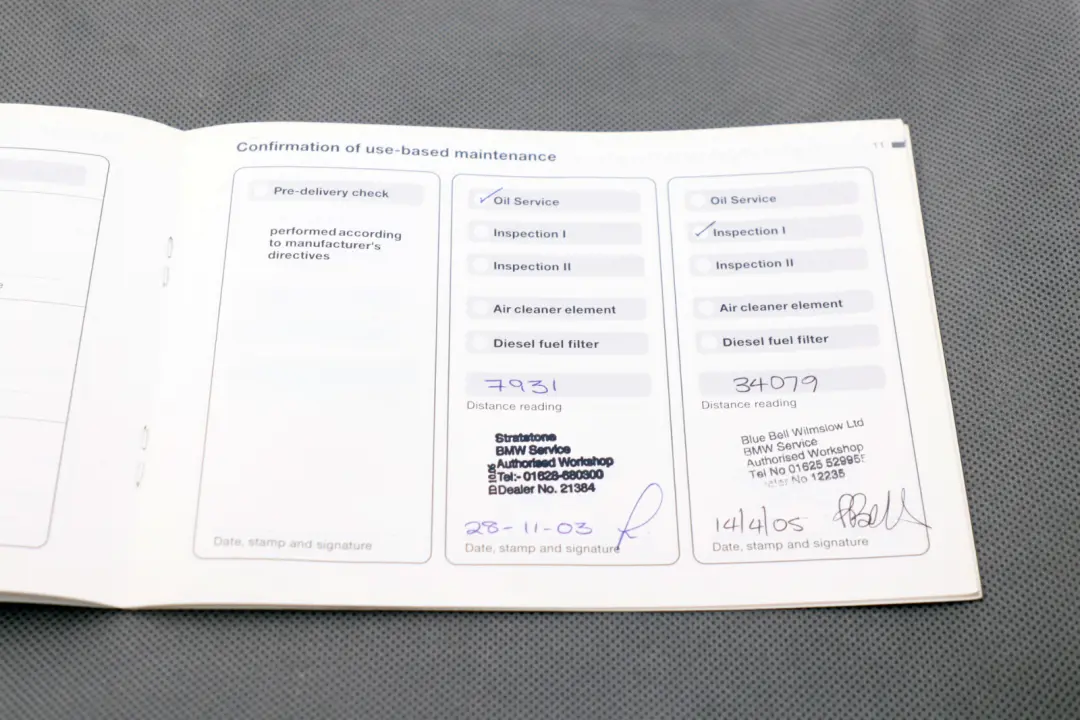 Confirmation of use-based maintenance
11
Pre-delivery check
performed according
to manufacturer's
directives
Date, stamp and signature
Oil Service
Inspection I
Inspection II
Air cleaner element
Diesel fuel filter
7931
Distance reading
Stratstone
BMW Service
Authorised Workshop
Tel:- 01628-680300
Dealer No. 21384
28-11-03
Date, stamp and signature
Oil Service
Inspection I
Inspection II
Air cleaner element
Diesel fuel filter
34079
Distance reading
Blue Bell Wilmslow Ltd
BMW Service
Authorised Workshop
Tel No 01625 529955
No 12235
14/4/05
Date, stamp and signature